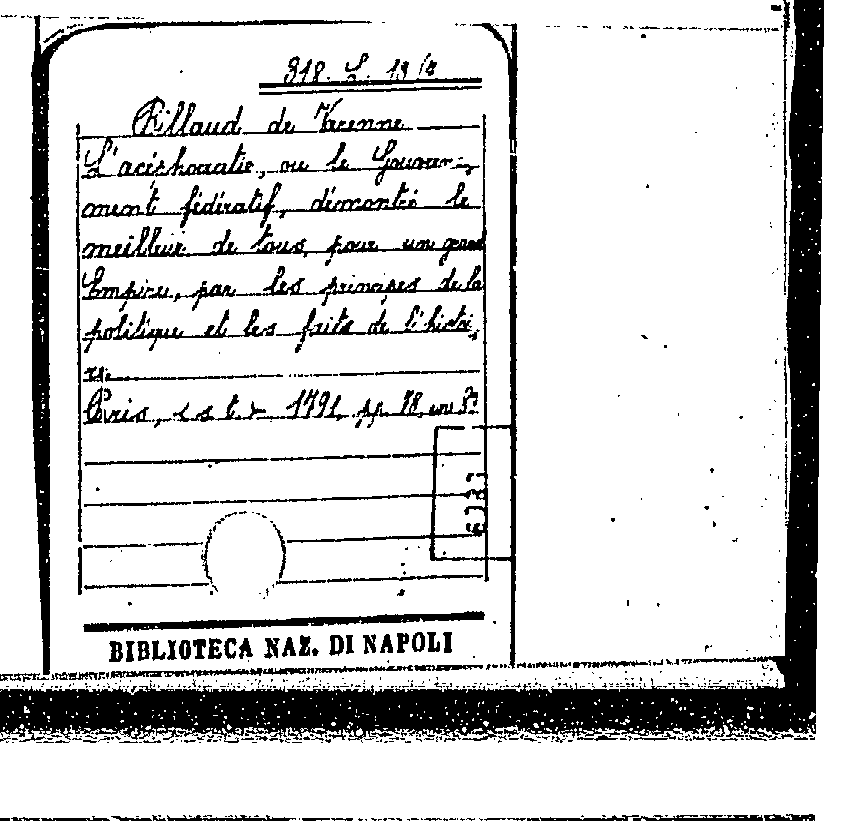 318. L. 13/8
Billaud de Varenne
L'acéphocratie, ou le Gouverne-
ment fédératif, démontré le
meilleur de tous, pour un grand
Empire, par les principes de la
politique et les faits de l'histoi-
re.
Paris, s. t. 1791, pp. 78, in 8º
BIBLIOTECA NAZ. DI NAPOLI